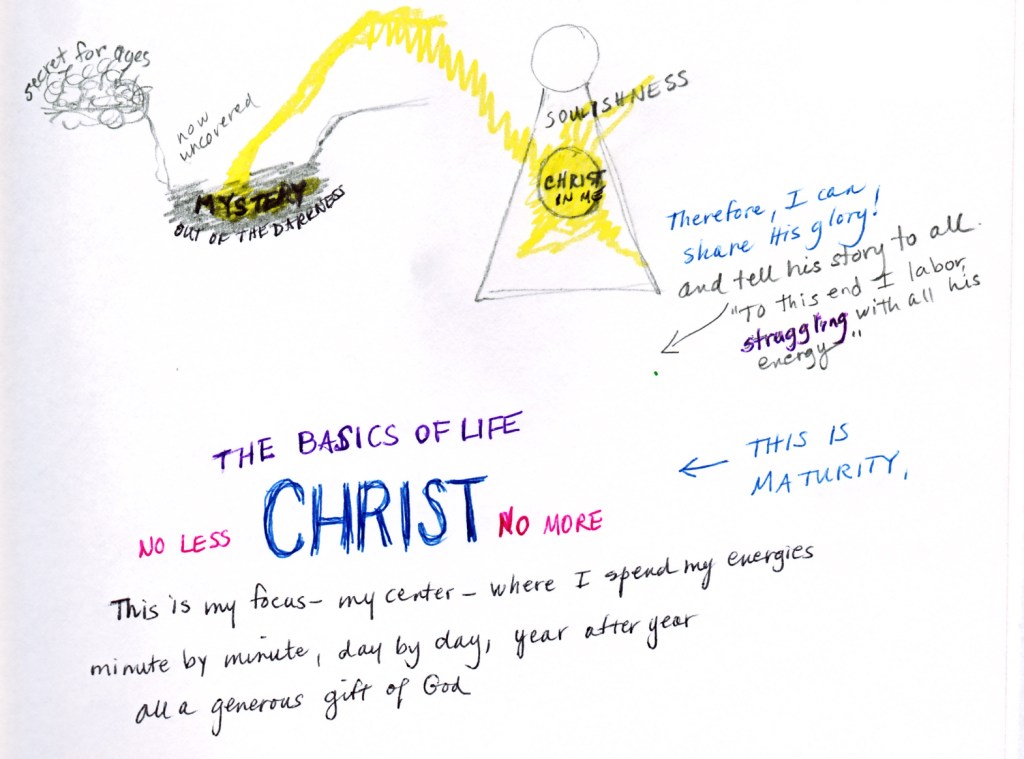 secret for ages
now
uncovered
MYSTERY
OUT OF THE DARKNESS
SOULISHNESS
CHRIST
IN ME
Therefore, I can
share His glory!
and tell his story to all.
"To this end I labor,
struggling with all his
energy"
THE BASICS OF LIFE
NO LESS CHRIST NO MORE
THIS IS
MATURITY.
This is my focus - my center - where I spend my energies
minute by minute, day by day, year after year
all a generous gift of God